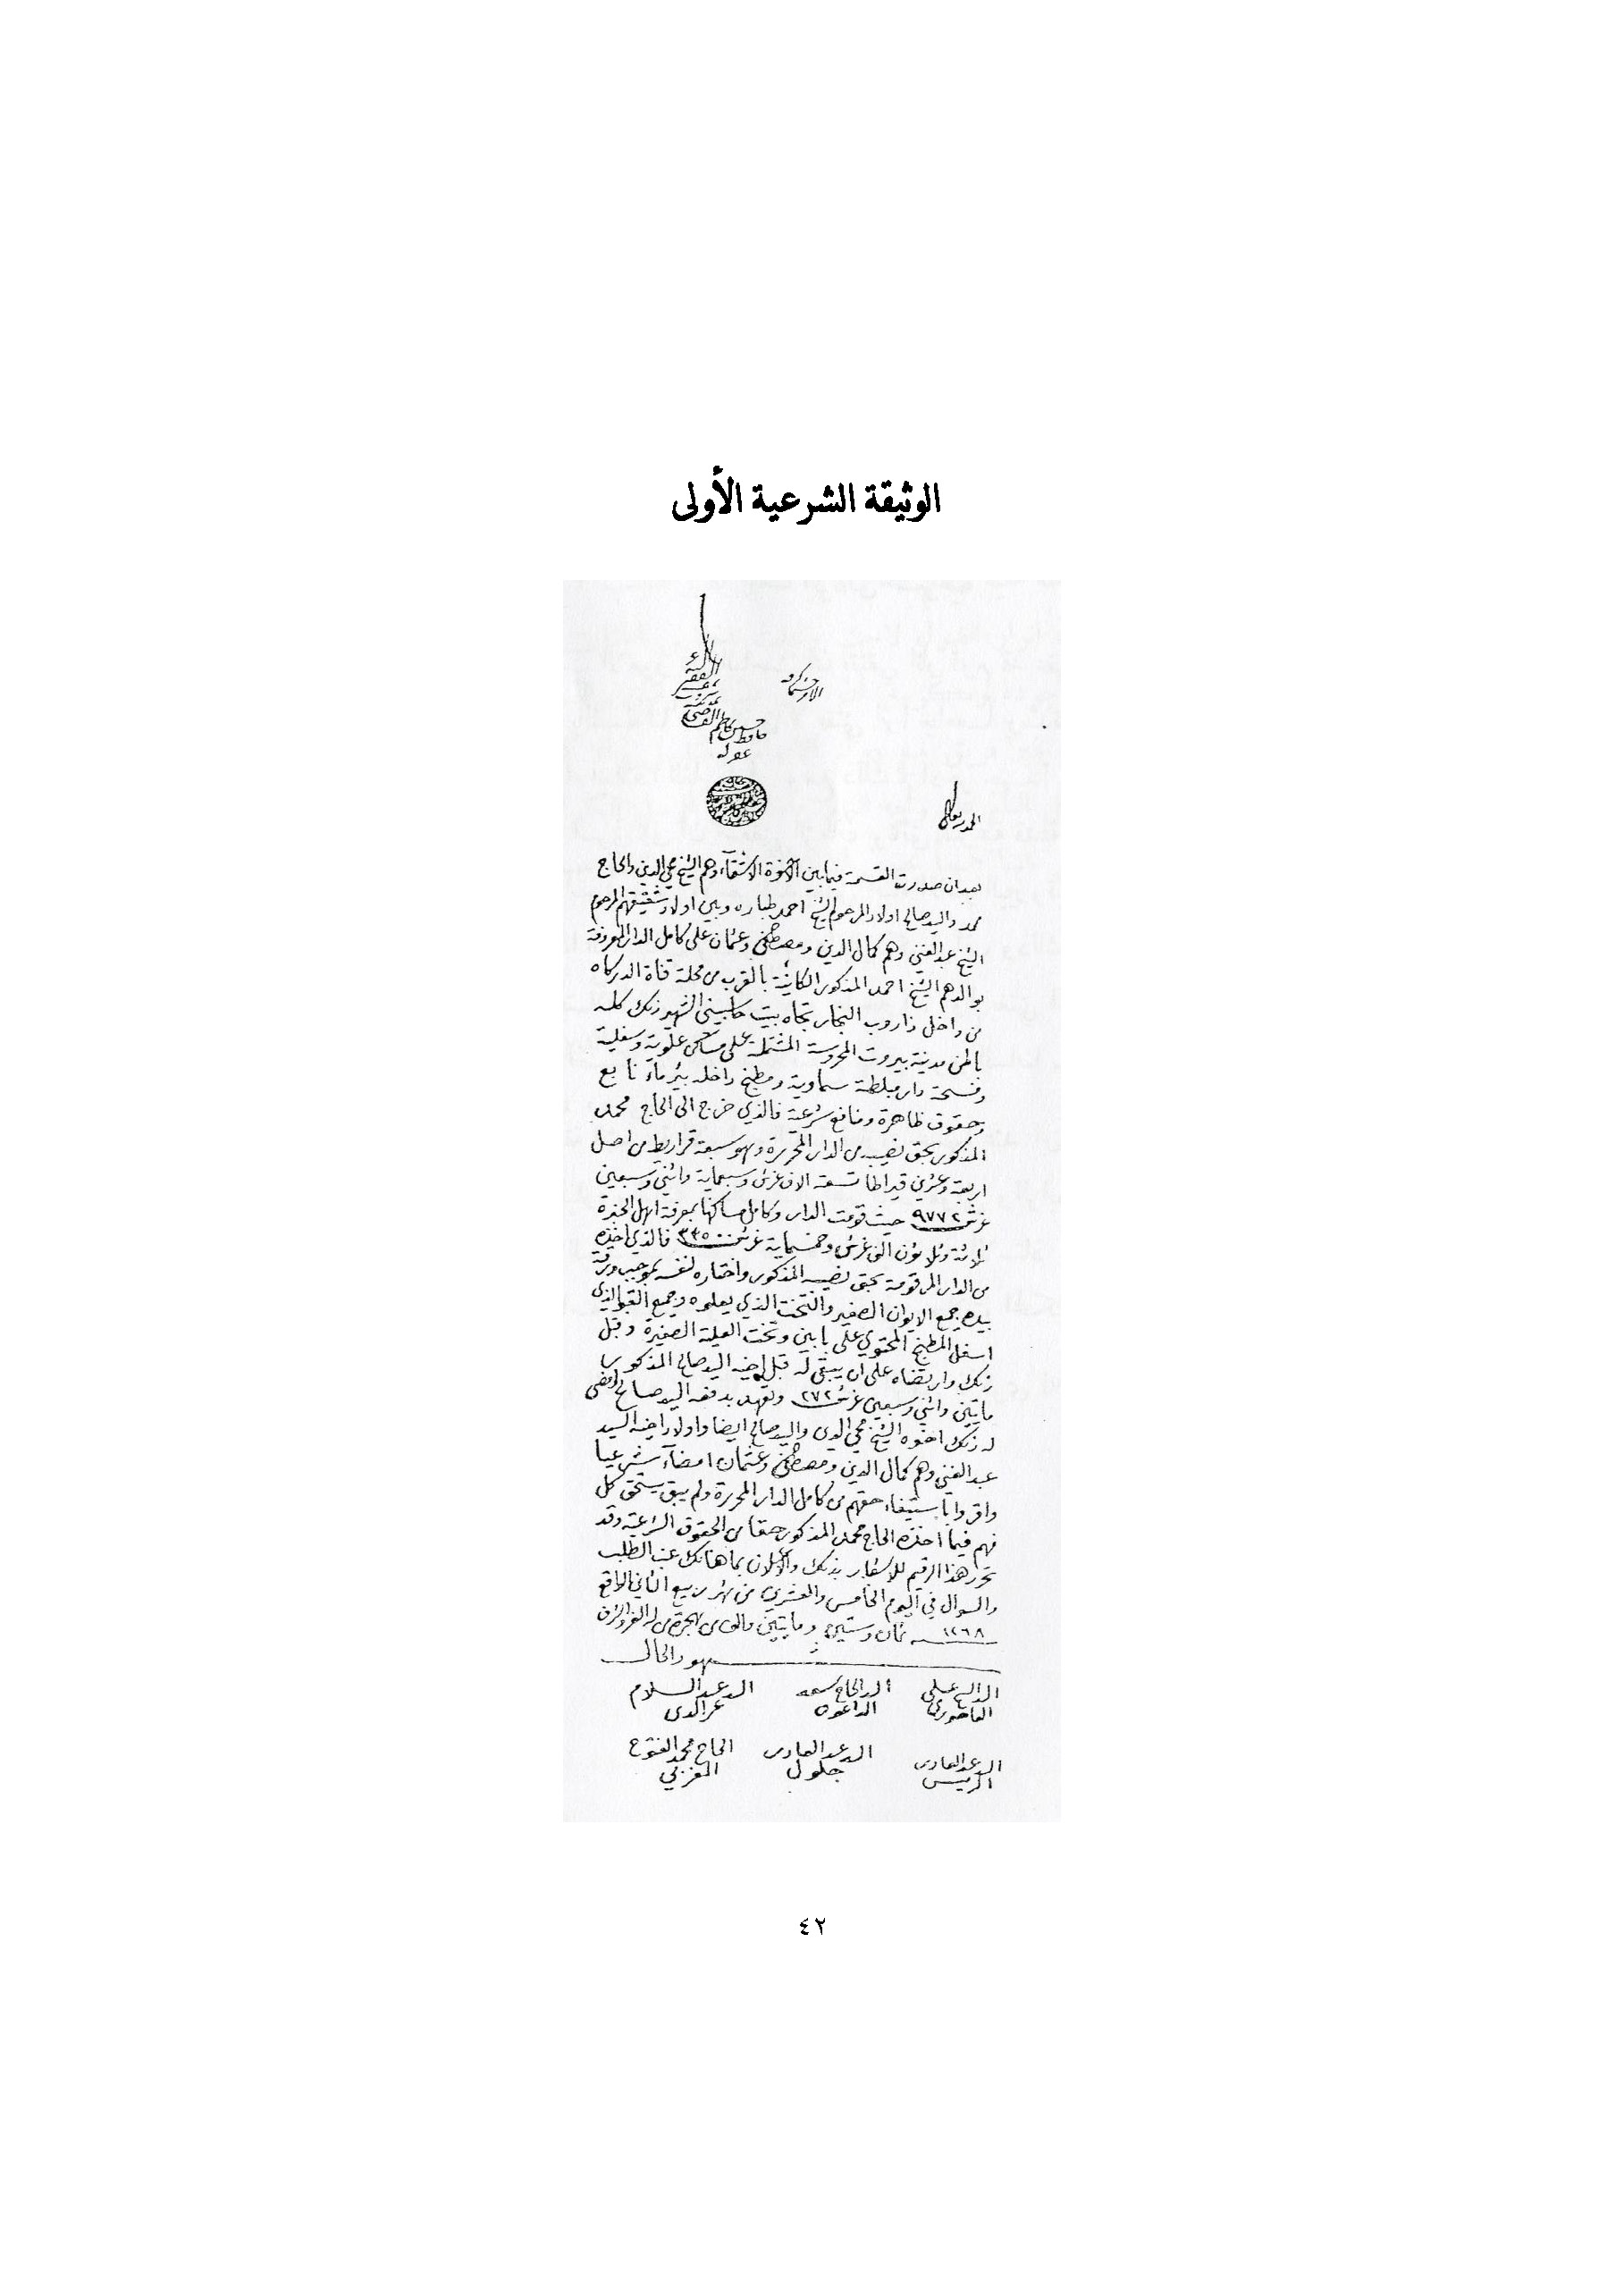 الوثيقة الشرعية الأولى
الفقير
حافظ حسين كاظم القاضي
عفي له
الحمد لله تعالى
بعد ان صدرت القسمة فيما بين الاخوة الاشقآء وهم الشيخ محي الدين والحاج
محمد والسيد صالح اولاد المرحوم الشيخ احمد طباره وبين اولاد شقيقهم المرحوم
الشيخ عبد الغني وهم كمال الدين ومصطفى وعثمان على كامل الدار المعروفة
بوالدهم الشيخ احمد المذكور الكاينة بالقرب من محلة قناة الدركاه
من داخل زاروب النجار تجاه بيت الشهير ذلك كله
باطن مدينة بيروت المحروسة المشتملة على مساكن علوية وسفلية
وفسحة دار مبلطة سماوية ومطبخ داخله بئر ماء نابع
وحقوق ظاهرة ومنافع شرعية فالذي خرج الى الحاج محمد
المذكور بحق نصيبه من الدار المحررة وهو سبعة قراريط من اصل
اربعة وعشرين قيراطا تسعة الاف غرش وسبعماية واثني وسبعين
غرش ٩٧٧٢ حيث قومت الدار وكامل مساكنها بمعرفة اهل الخبرة
ثلاثة وثلاثون الف غرش وخمسماية غرش ٣٣٥٠٠ فالذي اخذه
من الدار المرقومة بحق نصيبه المذكور واختاره لنفسه بموجب ورقة
بيده جميع الايوان الصغير والتخت الذي يعلوه وجميع القبو الذي
اسفل المطبخ المحتوي على بابين وتخت العلية الصغيرة وقبل
ذلك وارتضاه على ان يبقى له قبل اخيه السيد صالح المذكور
مايتين واثني وسبعين غرش ٢٧٢ وتعهد بدفعه السيد صالح وامضى
له ذلك اخوه الشيخ محي الدين والسيد صالح ايضا واولاد اخيه السيد
عبد الغني وهم كمال الدين ومصطفى وعثمان امضآء شرعيا
واقروا باستيفاء حقهم من كامل الدار المحررة ولم يبق يستحق كل
فهم فيما اخذه الحاج محمد المذكور حقا من الحقوق الشرعية وقد
تحرر هذا الرقيم للاشعار بذلك والاعلان بما هنالك غب الطلب
والسوال في اليوم الخامس والعشرين من شهر ربيع الثاني الواقع
١٢٦٨ ثمان وستين ومايتين والف من هجرة من له العز والشرف
شهود الحال
السيد عبد السلام
السيد الحاج سعد
السيد الحاج علي
عز الدين
الداعوق
الفاخوري
الحاج محمد الفتوح
السيد عبد القادر
السيد عبد القادر
المغربي
جلول
الريس
٤٢